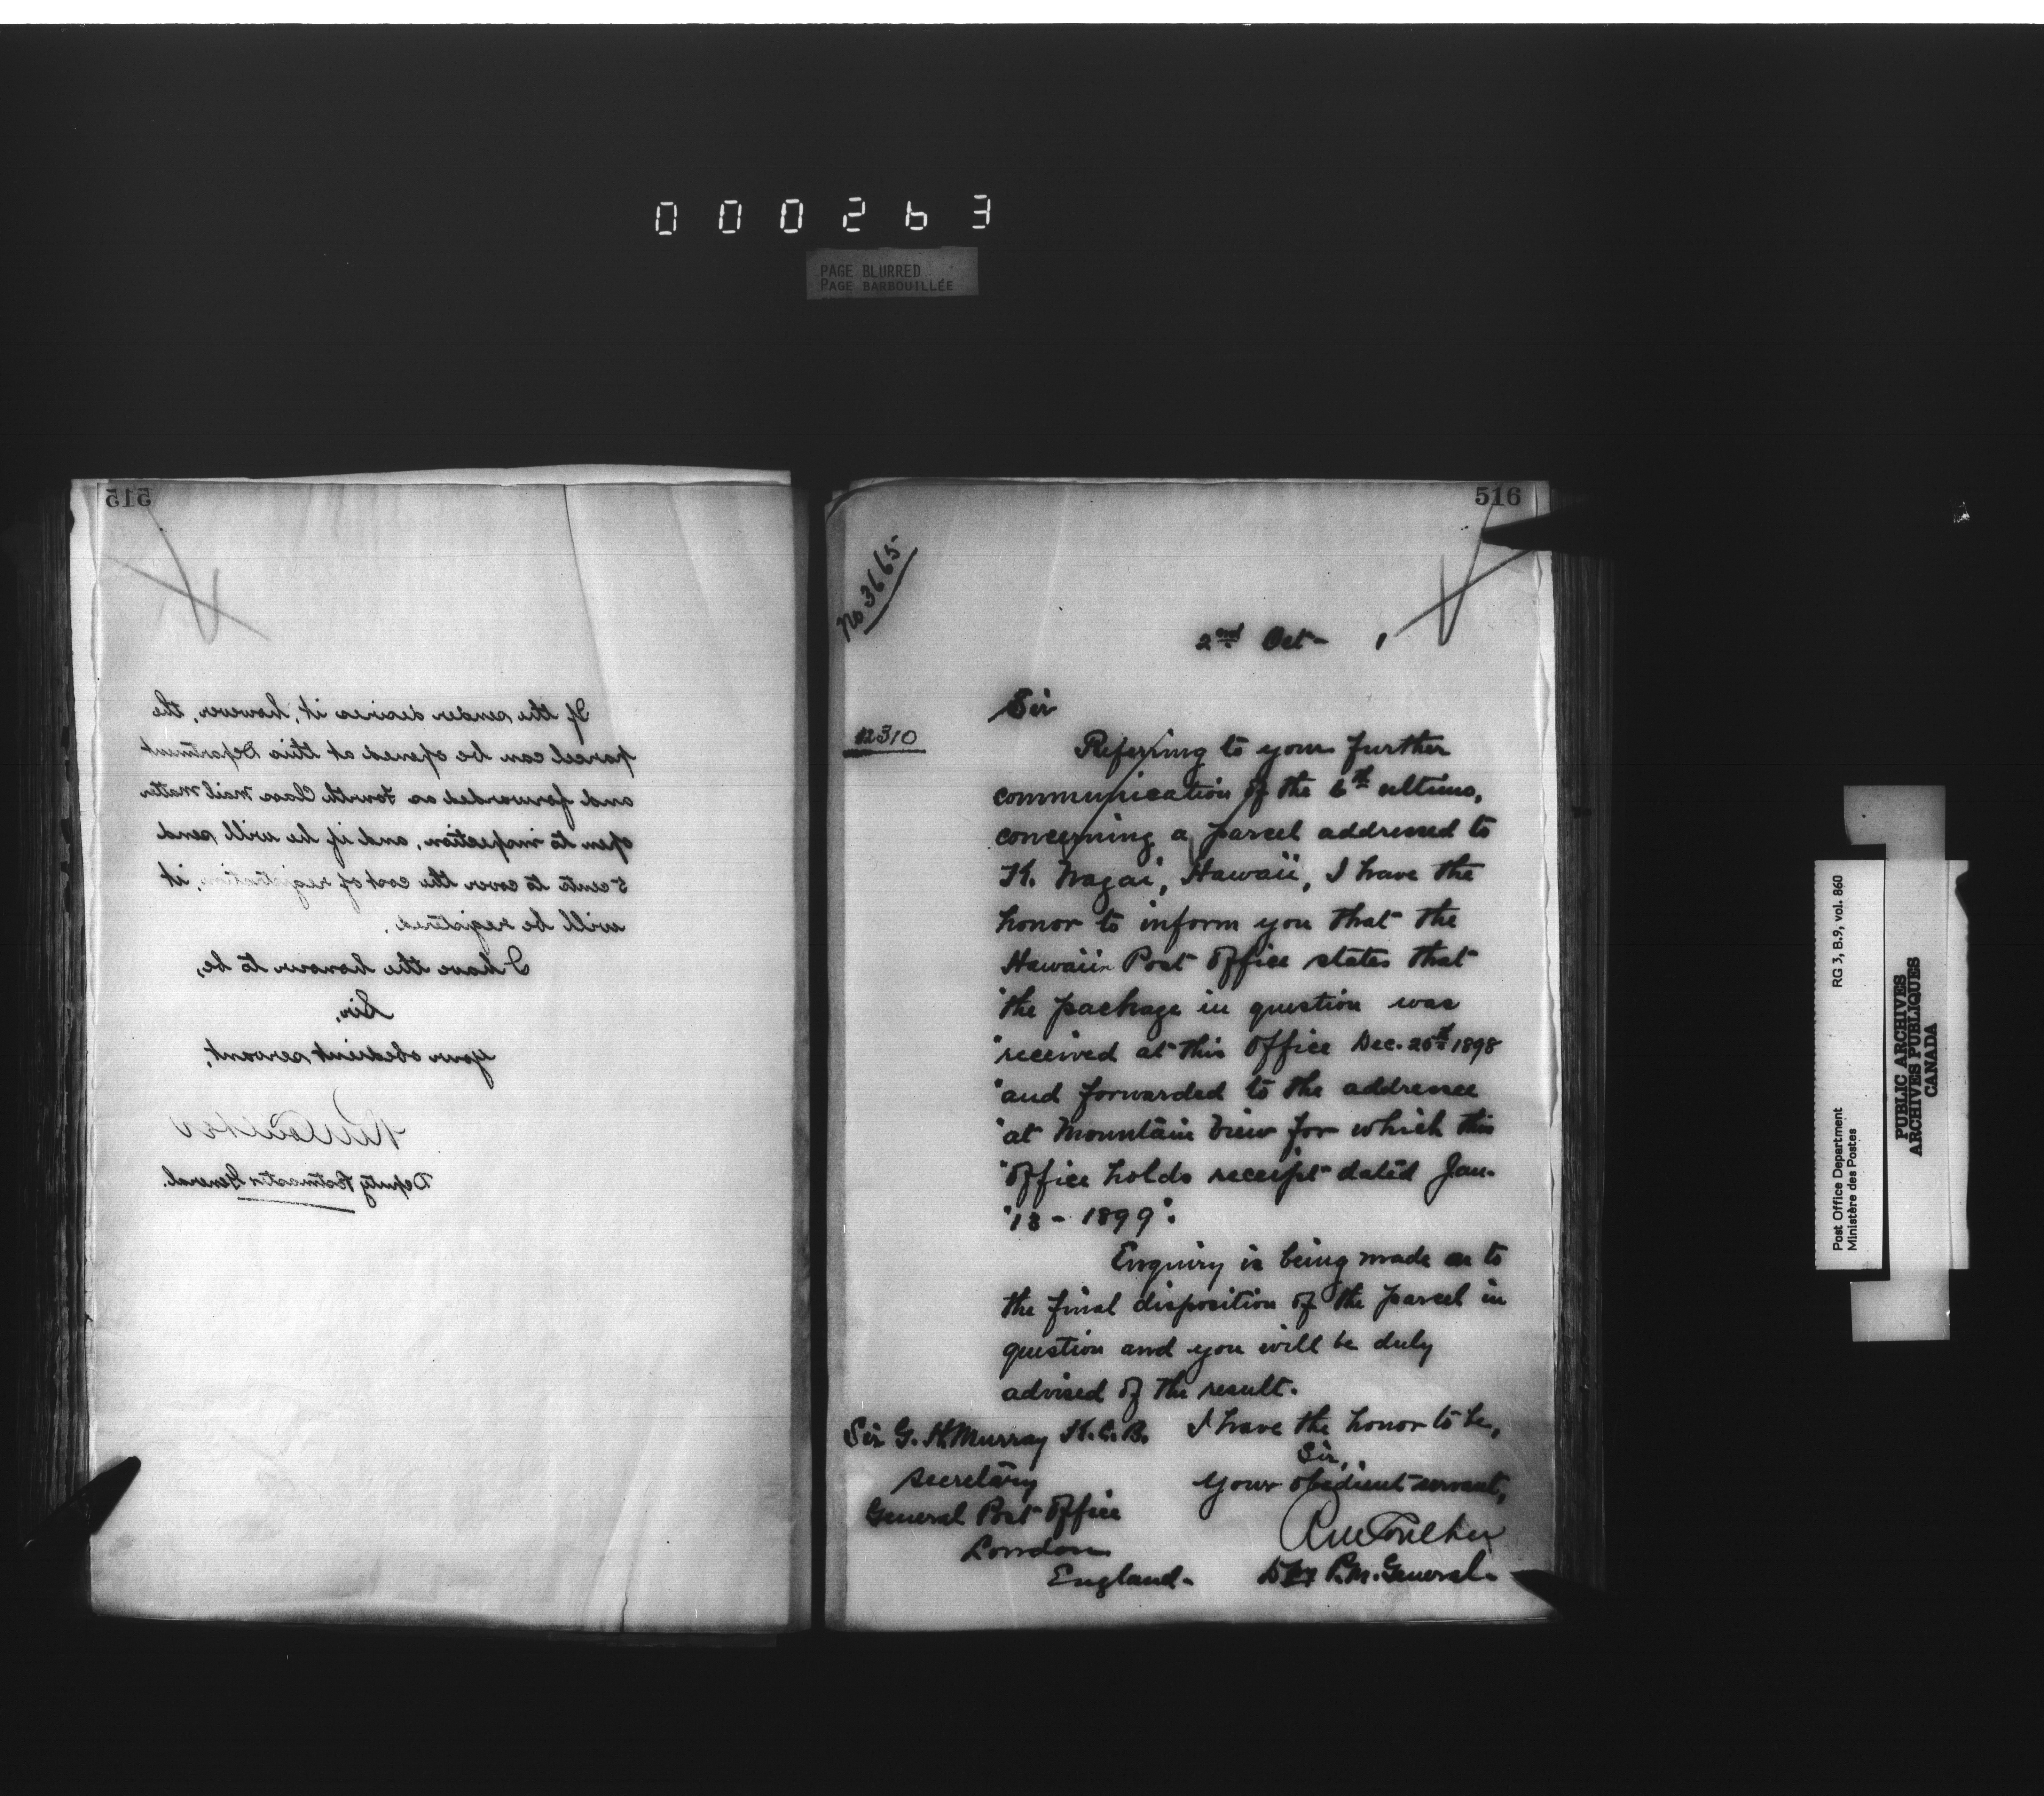 000263
PAGE BLURRED
PAGE BARBOUILLÉE
515
If the sender desires it, however, the
parcel can be opened at this Department
and forwarded as Fourth Class Mail Matter
open to inspection, and if he will send
5 cents to cover the cost of registration, it
will be registered.
I have the honour to be,
Sir,
Your obedient servant,
Deputy Postmaster General.
516
No 3665
2nd Oct
Sir
12310
Referring to your further
communication of the 6th ultimo,
concerning a parcel addressed to
K. Nagai, Hawaii, I have the
honor to inform you that the
Hawaiin Post Office states that
"the package in question was
"received at this Office Dec. 20th 1898
"and forwarded to the addressee
"at Mountain View for which this
"Office holds receipt dated Jan.
"13 - 1899".
Enquiry is being made as to
the final disposition of the parcel in
question and you will be duly
advised of the result.
I have the honor to be,
Sir,
Your obedient servant,
P.M. General.
Sir G. H. Murray K.C.B.
Secretary
General Post Office
London
England.
Post Office Department
Ministère des Postes
RG 3, B.9, vol. 860
PUBLIC ARCHIVES
ARCHIVES PUBLIQUES
CANADA